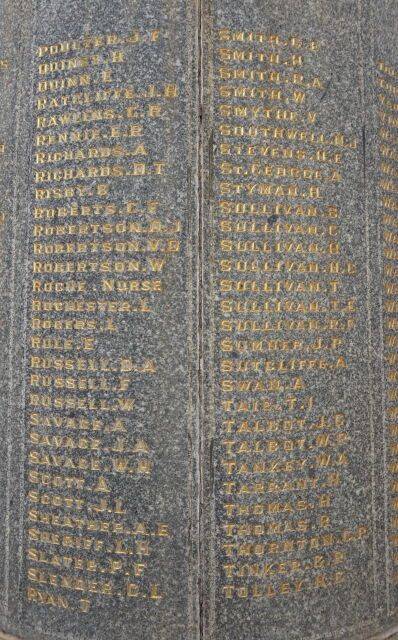 POULTER. J. F
QUINN. H
QUINN. E
RATCLIFFE. J. H
RAWLINS. C. R
RENNIE. E. R
RICHARDS. A
RICHARDS. H. T
RISBY. E
ROBERTS. C. E
ROBERTSON. A. J
ROBERTSON. M. G
ROBERTSON. W
ROGUE NURSE
ROCHESTER. L
ROGERS. L
RULE. E
RUSSELL. G. A
RUSSELL. F
RUSSELL. W
SAVAGE. A
SAVAGE. J. A
SAVAGE. W. H
SCOTT. A
SCOTT. J. L
SHEATHER. A. E
SHERIFF. L. H
SLATER. P. F
SLENDER. C. L
RYAN T
SMITH. G. E
SMITH. H
SMITH. R. A
SMITH. W
SMYTHE. V
SOUTHWELL. H. J
STEVENS. H. E
ST. GEORGE. A
STYMAN. H
SULLIVAN. B
SULLIVAN. C
SULLIVAN. H
SULLIVAN. H. L
SULLIVAN. T
SULLIVAN. T. L
SULLIVAN. P. F
SUMNER. J. P
SUTCLIFFE. A
SWAN. A
TAIT. T. J
TALBOT. J. P
TALBOT. W. P
TANKEY. W. A
TARRANT. H
THOMAS. H
THOMAS. R
THORNTON. C. P
TINKER. G. R
TOLLEY. A. C